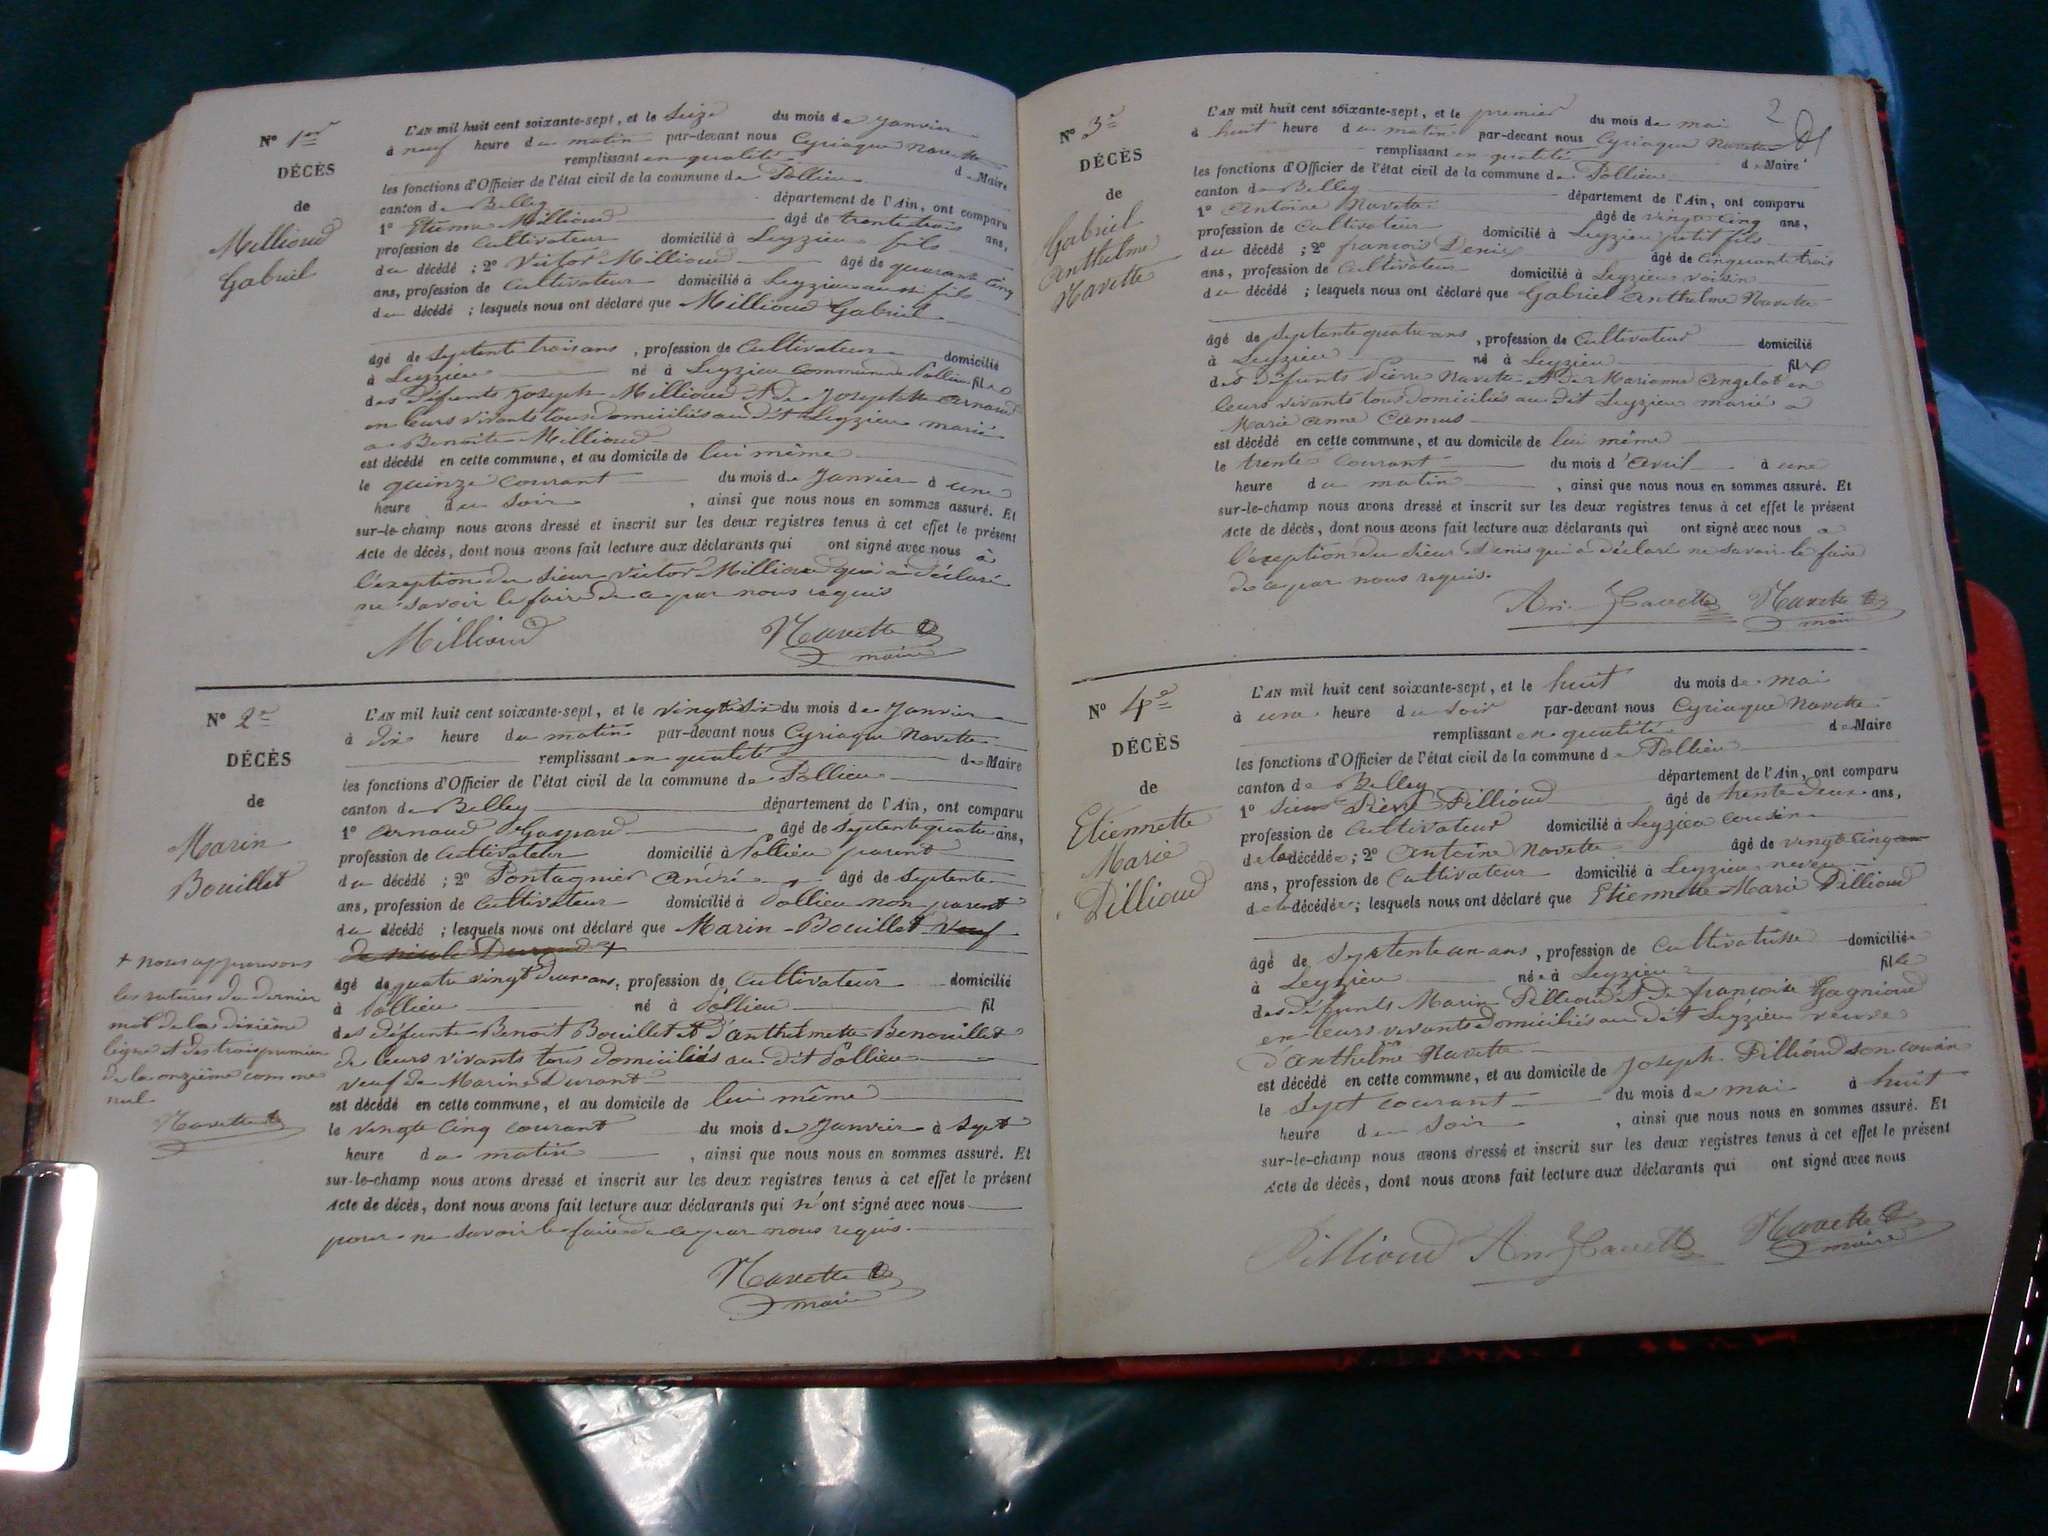 N° 1er
DÉCÈS
de
Millioud
Gabriel
L'AN mil huit cent soixante-sept, et le Seize du mois de Janvier
à neuf heure du matin par-devant nous Cyriaque Navette
remplissant en qualité de Maire
les fonctions d'Officier de l'état civil de la commune de Pollieu
canton de Belley département de l'Ain, ont comparu
1° Etienne Millioud âgé de trente trois ans,
profession de Cultivateur domicilié à Leyzieu fils
du décédé ; 2° Victor Millioud âgé de quarante cinq
ans, profession de Cultivateur domicilié à Leyzieu aussi fils
du décédé ; lesquels nous ont déclaré que Millioud Gabriel
âgé de Septente trois ans, profession de Cultivateur domicilié
à Leyzieu né à Leyzieu commune de Pollieu fils
des défunts Joseph Millioud et de Josephte Arnaud
en leurs vivants tous domiciliés au dit Leyzieu marié
a Benoite Millioud
est décédé en cette commune, et au domicile de lui même
le quinze courant du mois de Janvier à une
heure du soir, ainsi que nous nous en sommes assuré. Et
sur-le-champ nous avons dressé et inscrit sur les deux registres tenus à cet effet le présent
Acte de décès, dont nous avons fait lecture aux déclarants qui ont signé avec nous à
l'exeption du sieur Victor Millioud qui a déclaré
ne savoir le faire de ce par nous requis
Millioud Navette
maire
N° 2e
DÉCÈS
de
Marin
Bouillet
+ nous approuvons
les ratures du dernier
mot de la dixième
ligne et des trois premiers
de la onzième comme
nul
Navette
L'AN mil huit cent soixante-sept, et le vingt six du mois de Janvier
à dix heure du matin par-devant nous Cyriaque Navette
remplissant en qualité de Maire
les fonctions d'Officier de l'état civil de la commune de Pollieu
canton de Belley département de l'Ain, ont comparu
1° Arnaud Gaspard âgé de Septente quatre ans,
profession de Cultivateur domicilié à Pollieu parent
du décédé ; 2° Pontagnier André âgé de Septente
ans, profession de Cultivateur domicilié à Pollieu non parent
du décédé ; lesquels nous ont déclaré que Marin Bouillet veuf
de nicole Durand +
âgé de quatre vingt deux ans, profession de Cultivateur domicilié
à Pollieu né à Pollieu fil
des défunts Benoit Bouillet et d'Anthelmette Benouillet
de leurs vivants tous domiciliés au dit Pollieu
veuf de Marine Durant
est décédé en cette commune, et au domicile de lui même
le vingt cinq courant du mois de Janvier à Sept
heure du matin, ainsi que nous nous en sommes assuré. Et
sur-le-champ nous avons dressé et inscrit sur les deux registres tenus à cet effet le présent
Acte de décès, dont nous avons fait lecture aux déclarants qui n'ont signé avec nous
pour ne savoir le faire de ce par nous requis.
Navette
maire
2
N° 3e
DÉCÈS
de
Gabriel
Anthelme
Navette
L'AN mil huit cent soixante-sept, et le premier du mois de mai
à huit heure du matin par-devant nous Cyriaque Navette
remplissant en qualité de Maire
les fonctions d'Officier de l'état civil de la commune de Pollieu
canton de Belley département de l'Ain, ont comparu
1° Antoine Navette âgé de vingt cinq ans,
profession de Cultivateur domicilié à Leyzieu petit fils
du décédé ; 2° françois Denis âgé de cinquante trois
ans, profession de Cultivateur domicilié à Leyzieu voisin
du décédé ; lesquels nous ont déclaré que Gabriel Anthelme Navette
âgé de Septente quatre ans, profession de Cultivateur domicilié
à Leyzieu né à Leyzieu fils
des défunts Pierre Navette et de Marianne Angelot en
leurs vivants tous domiciliés au dit Leyzieu marié a
Marie Anne Camus
est décédé en cette commune, et au domicile de lui même
le trente courant du mois d'avril à une
heure du matin, ainsi que nous nous en sommes assuré. Et
sur-le-champ nous avons dressé et inscrit sur les deux registres tenus à cet effet le présent
Acte de décès, dont nous avons fait lecture aux déclarants qui ont signé avec nous a
l'exeption du Sieur Denis qui a déclaré ne savoir le faire
de ce par nous requis.
An. Navette Navette
maire
N° 4e
DÉCÈS
de
Etiennette
Marie
Pillioud
L'AN mil huit cent soixante-sept, et le huit du mois de mai
à une heure du soir par-devant nous Cyriaque Navette
remplissant en qualité de Maire
les fonctions d'Officier de l'état civil de la commune de Pollieu
canton de Belley département de l'Ain, ont comparu
1° Sieur Pierre Pillioud âgé de trente deux ans,
profession de Cultivateur domicilié à Leyzieu cousin
de la décédée ; 2° Antoine Navette âgé de vingt cinq ans
ans, profession de Cultivateur domicilié à Leyzieu neveu
de la décédée ; lesquels nous ont déclaré que Etiennette Marie Pillioud
âgé de Septente un ans, profession de Cultivatrisse domiciliée
à Leyzieu née à Leyzieu fille
des défunts Marin Pillioud et de françoise Gagnioud
en leurs vivants domiciliés au dit Leyzieu veuve
d'Anthelme Navette
est décédé en cette commune, et au domicile de Joseph Pillioud son cousin
le Sept courant du mois de mai à huit
heure du soir, ainsi que nous nous en sommes assuré. Et
sur-le-champ nous avons dressé et inscrit sur les deux registres tenus à cet effet le présent
Acte de décès, dont nous avons fait lecture aux déclarants qui ont signé avec nous
Pillioud An Navette Navette
maire